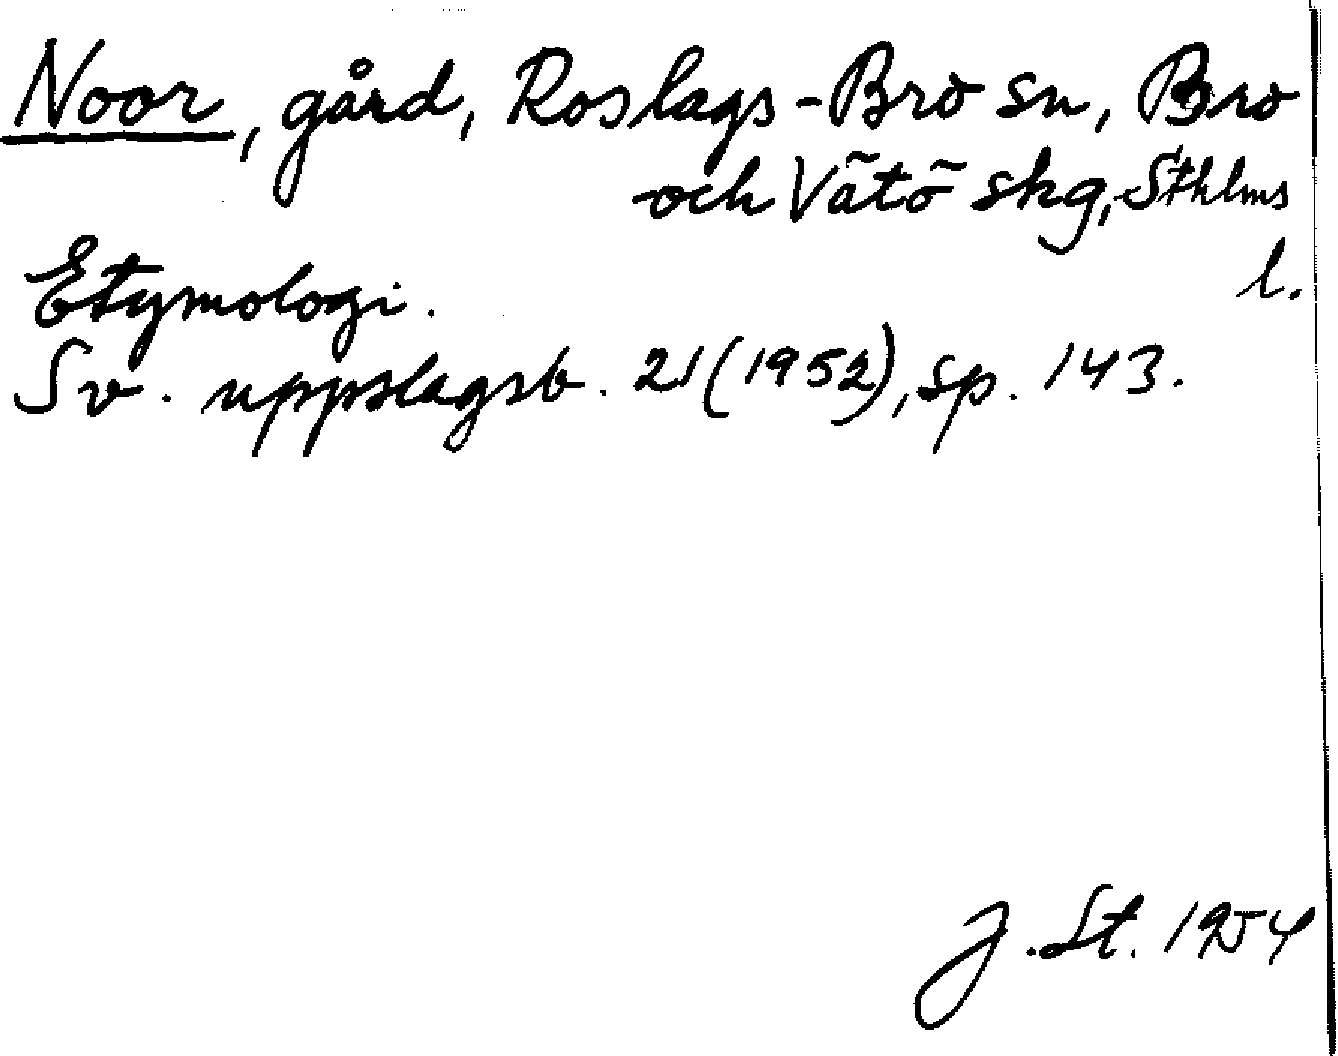 Noor, gård, Roslags-Bro sn, Bro
och Vätö skg, Sthlms
l.
Etymologi.
Sv. uppslagsb. 21 (1952), sp. 143.
J. St. 1954